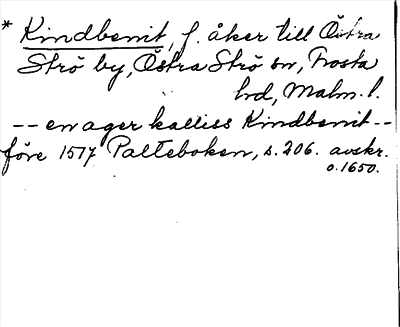 * Kindbenit, f. åker till Östra
Strö by, Östra Strö sn, Frosta
hd, Malm. l.
-- en ager kalliss Kindbenit --
före 1517 Palteboken, s. 206. avskr.
o. 1650.